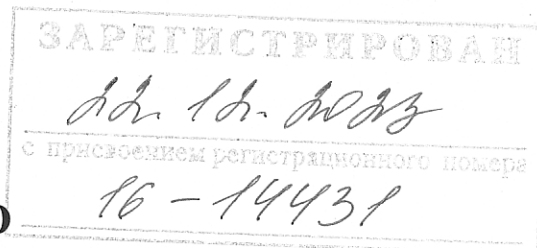 ЗАРЕГИСТРИРОВАН
22. 12. 2023
с присвоением регистрационного номера
16 - 14431